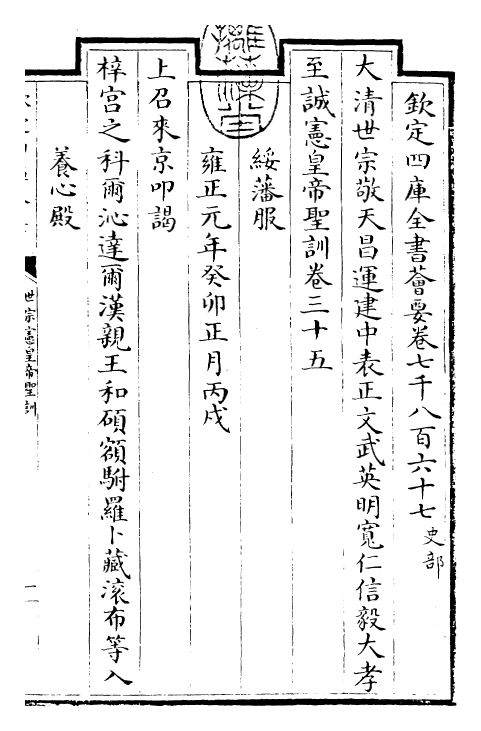 欽定四庫全書薈要卷七千八百六十七 史部
大清世宗敬天昌運建中表正文武英明寬仁信毅大孝
至誠憲皇帝聖訓卷三十五
綏藩服
雍正元年癸卯正月丙戌
上召來京叩謁
梓宮之科爾沁達爾漢親王和碩額駙羅卜藏滚布等入
養心殿
世宗憲皇帝聖訓
一